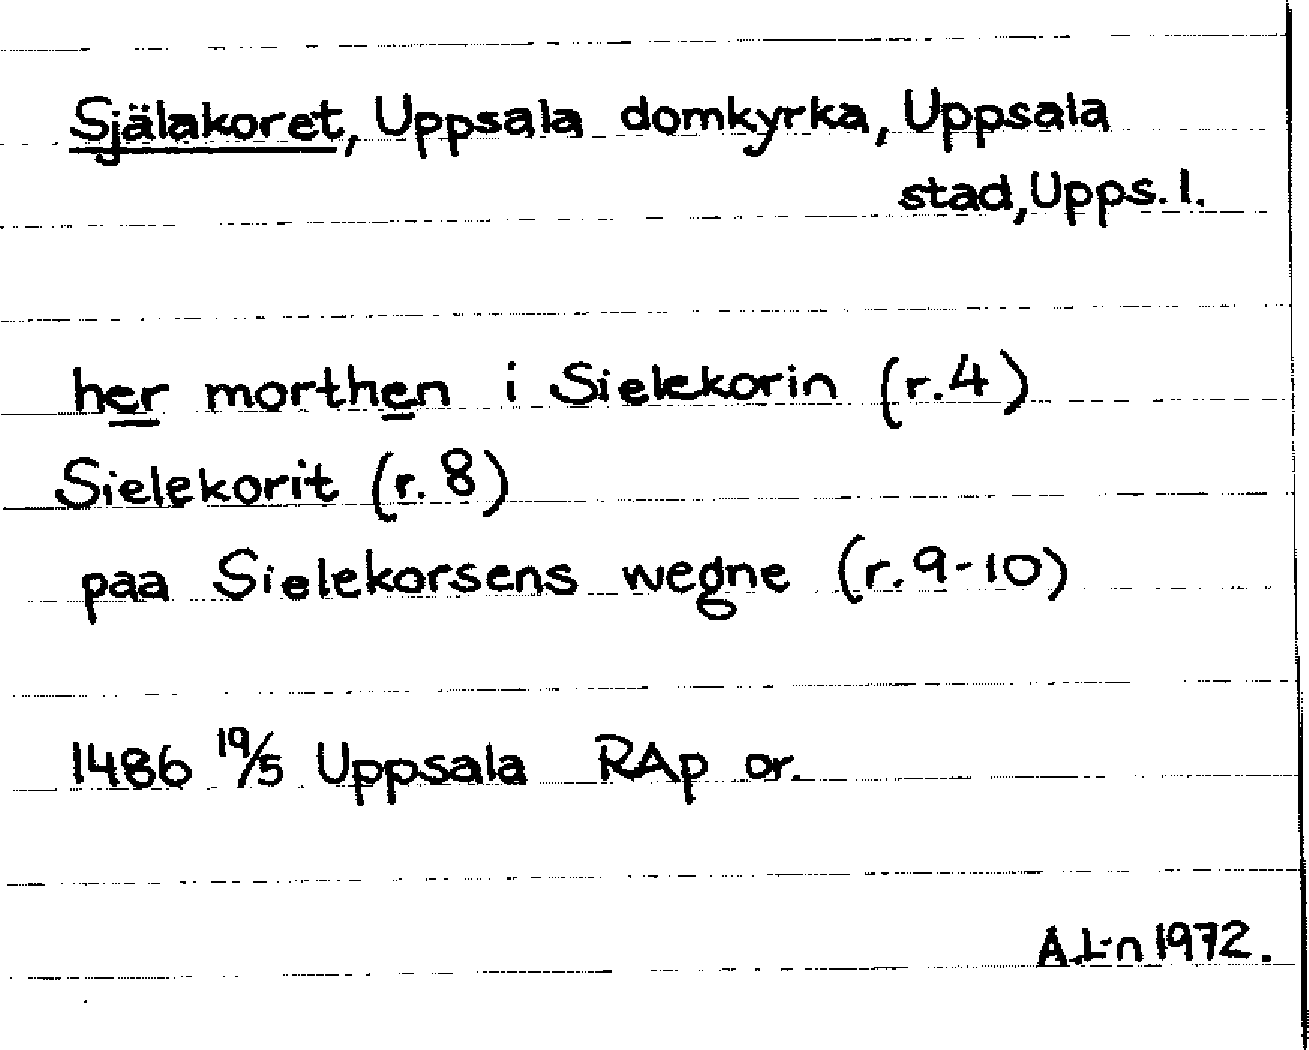 Själakoret, Uppsala domkyrka, Uppsala
stad, Upps. l.
her morthen i Sielekorin (r.4)
Sielekorit (r. 8)
paa Sielekorsens wegne (r.9-10)
1486 19/5 Uppsala RAp or.
A.L-n 1972.